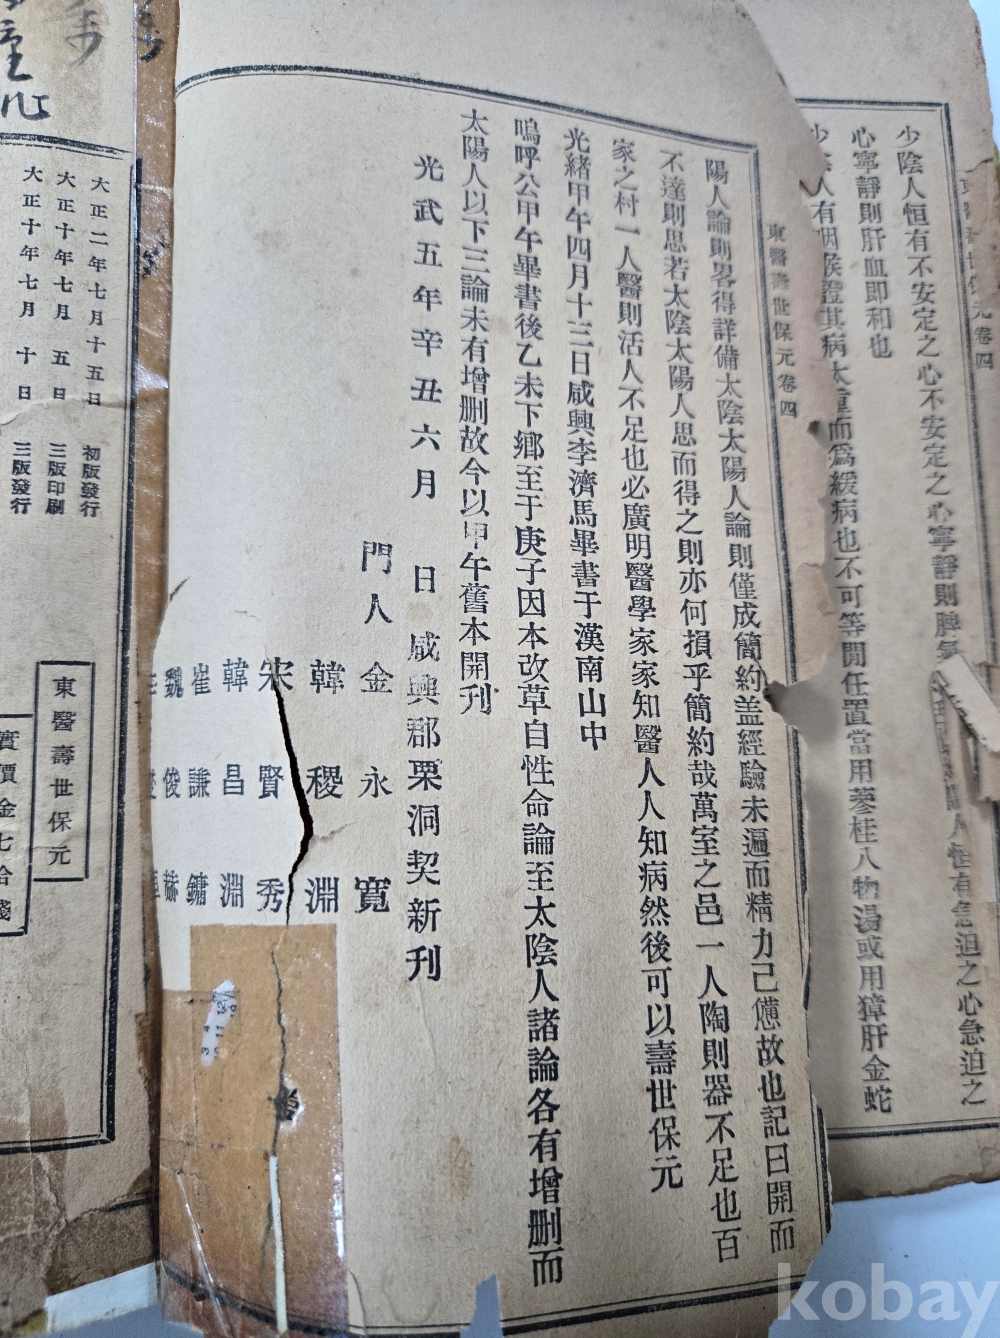 少陰人恒有不安定之心不安定之心寧靜則脾
心寧靜則肝血即和也
少陰人有咽喉證其病太重而爲緩病也不可等閒任置當用蔘桂八物湯或用獐肝金蛇
人恒有急迫之心急迫之
東醫壽世保元卷四
陽人論則畧得詳備太陰太陽人論則僅成簡約盖經驗未遍而精力已憊故也記曰開而
不達則思若太陰太陽人思而得之則亦何損乎簡約哉萬室之邑一人陶則器不足也百
家之村一人醫則活人不足也必廣明醫學家家知醫人人知病然後可以壽世保元
光緖甲午四月十三日咸興李濟馬畢書于漢南山中
嗚呼公甲午畢書後乙未下鄕至于庚子因本改草自性命論至太陰人諸論各有增删而
太陽人以下三論未有增删故今以甲午舊本開刊
光武五年辛丑六月 日咸興郡栗洞契新刊
門人 金永寬
韓稷淵
宋賢秀
韓昌淵
崔謙鏞
魏俊赫
大正二年七月十五日 初版發行
大正十年七月 五 日 三版印刷
大正十年七月 十 日 三版發行
東醫壽世保元
實價金七拾錢
kobay